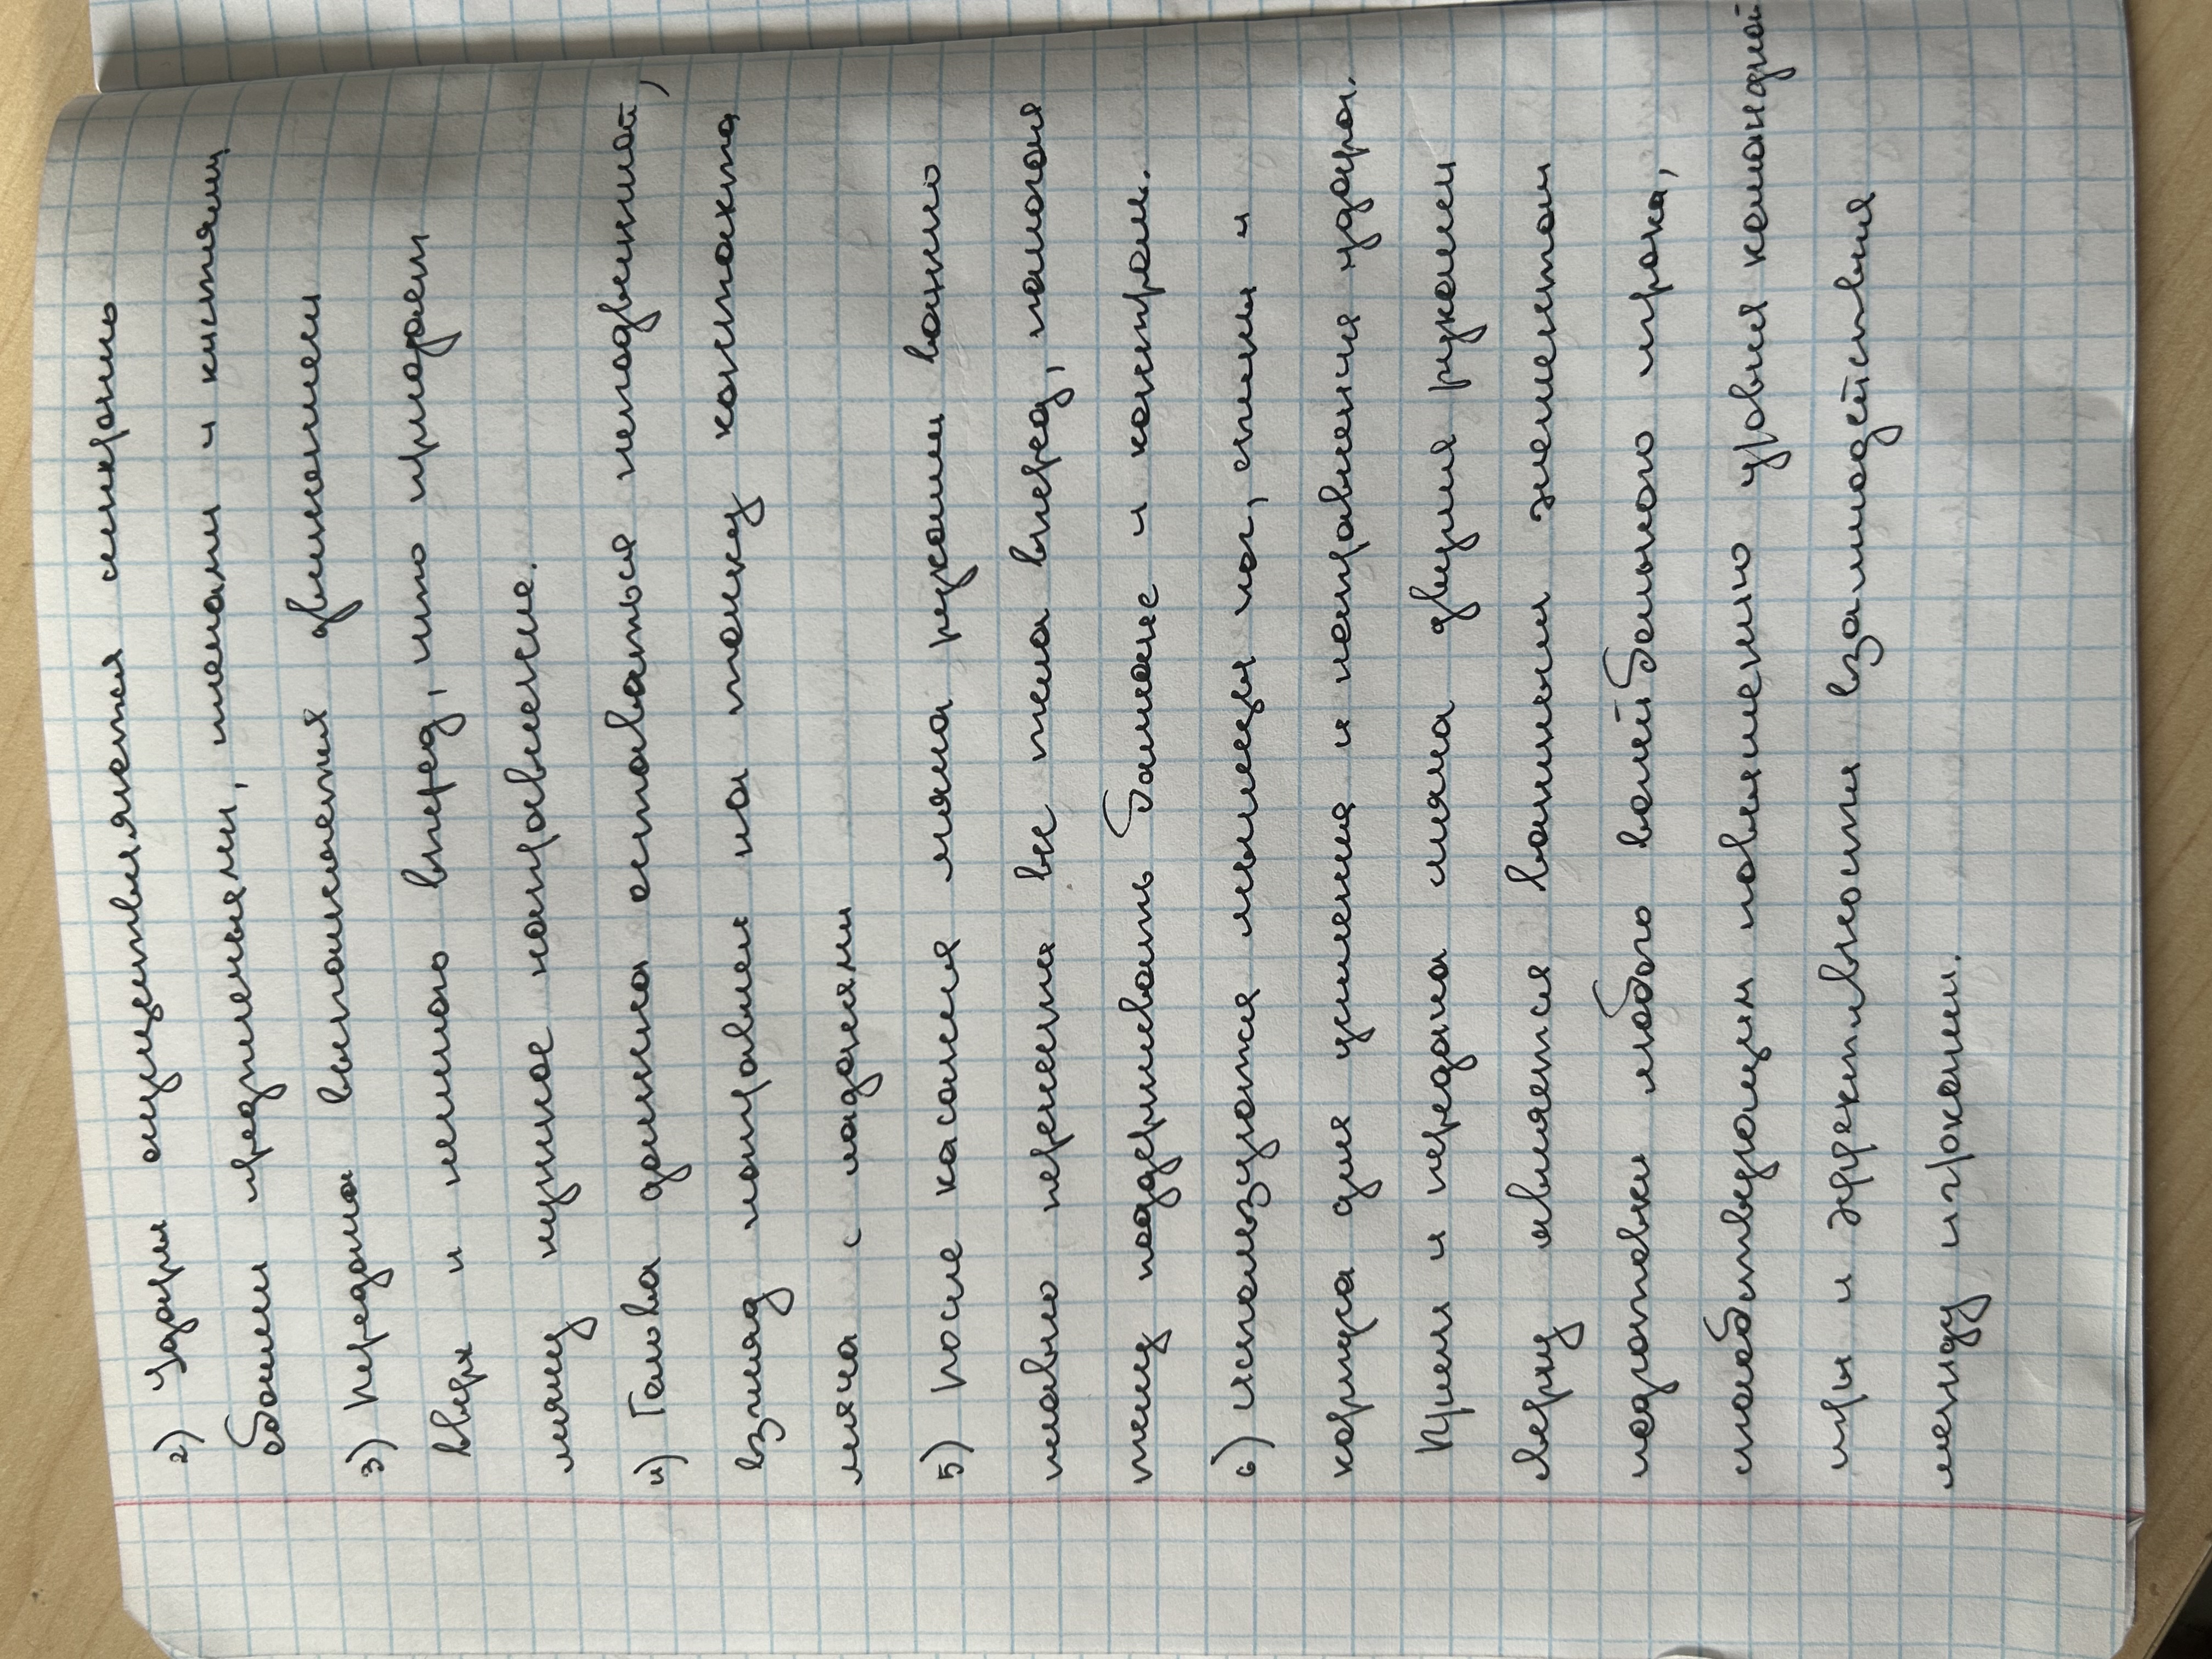 2) Удары осуществляются синхронно
обоими предплечьями, плечами и кистями
3) Передача выполняется движением
вверх и немного вперед, что придает
мячу нужное направление.
4) Голова должна оставаться неподвижной,
взгляд направлен на точку контакта
мяча с ладонями
5) После касания мяча руками важно
плавно перенести вес тела вперед, помогая
телу поддерживать баланс и контроль.
6) используются мышцы ног, спины и
корпуса для усиления и направления удара.
Прием и передача мяча двумя руками
сверху является важным элементом
подготовки любого волейбольного игрока,
способствующим повышению уровня командной
игры и эффективности взаимодействия
между игроками.